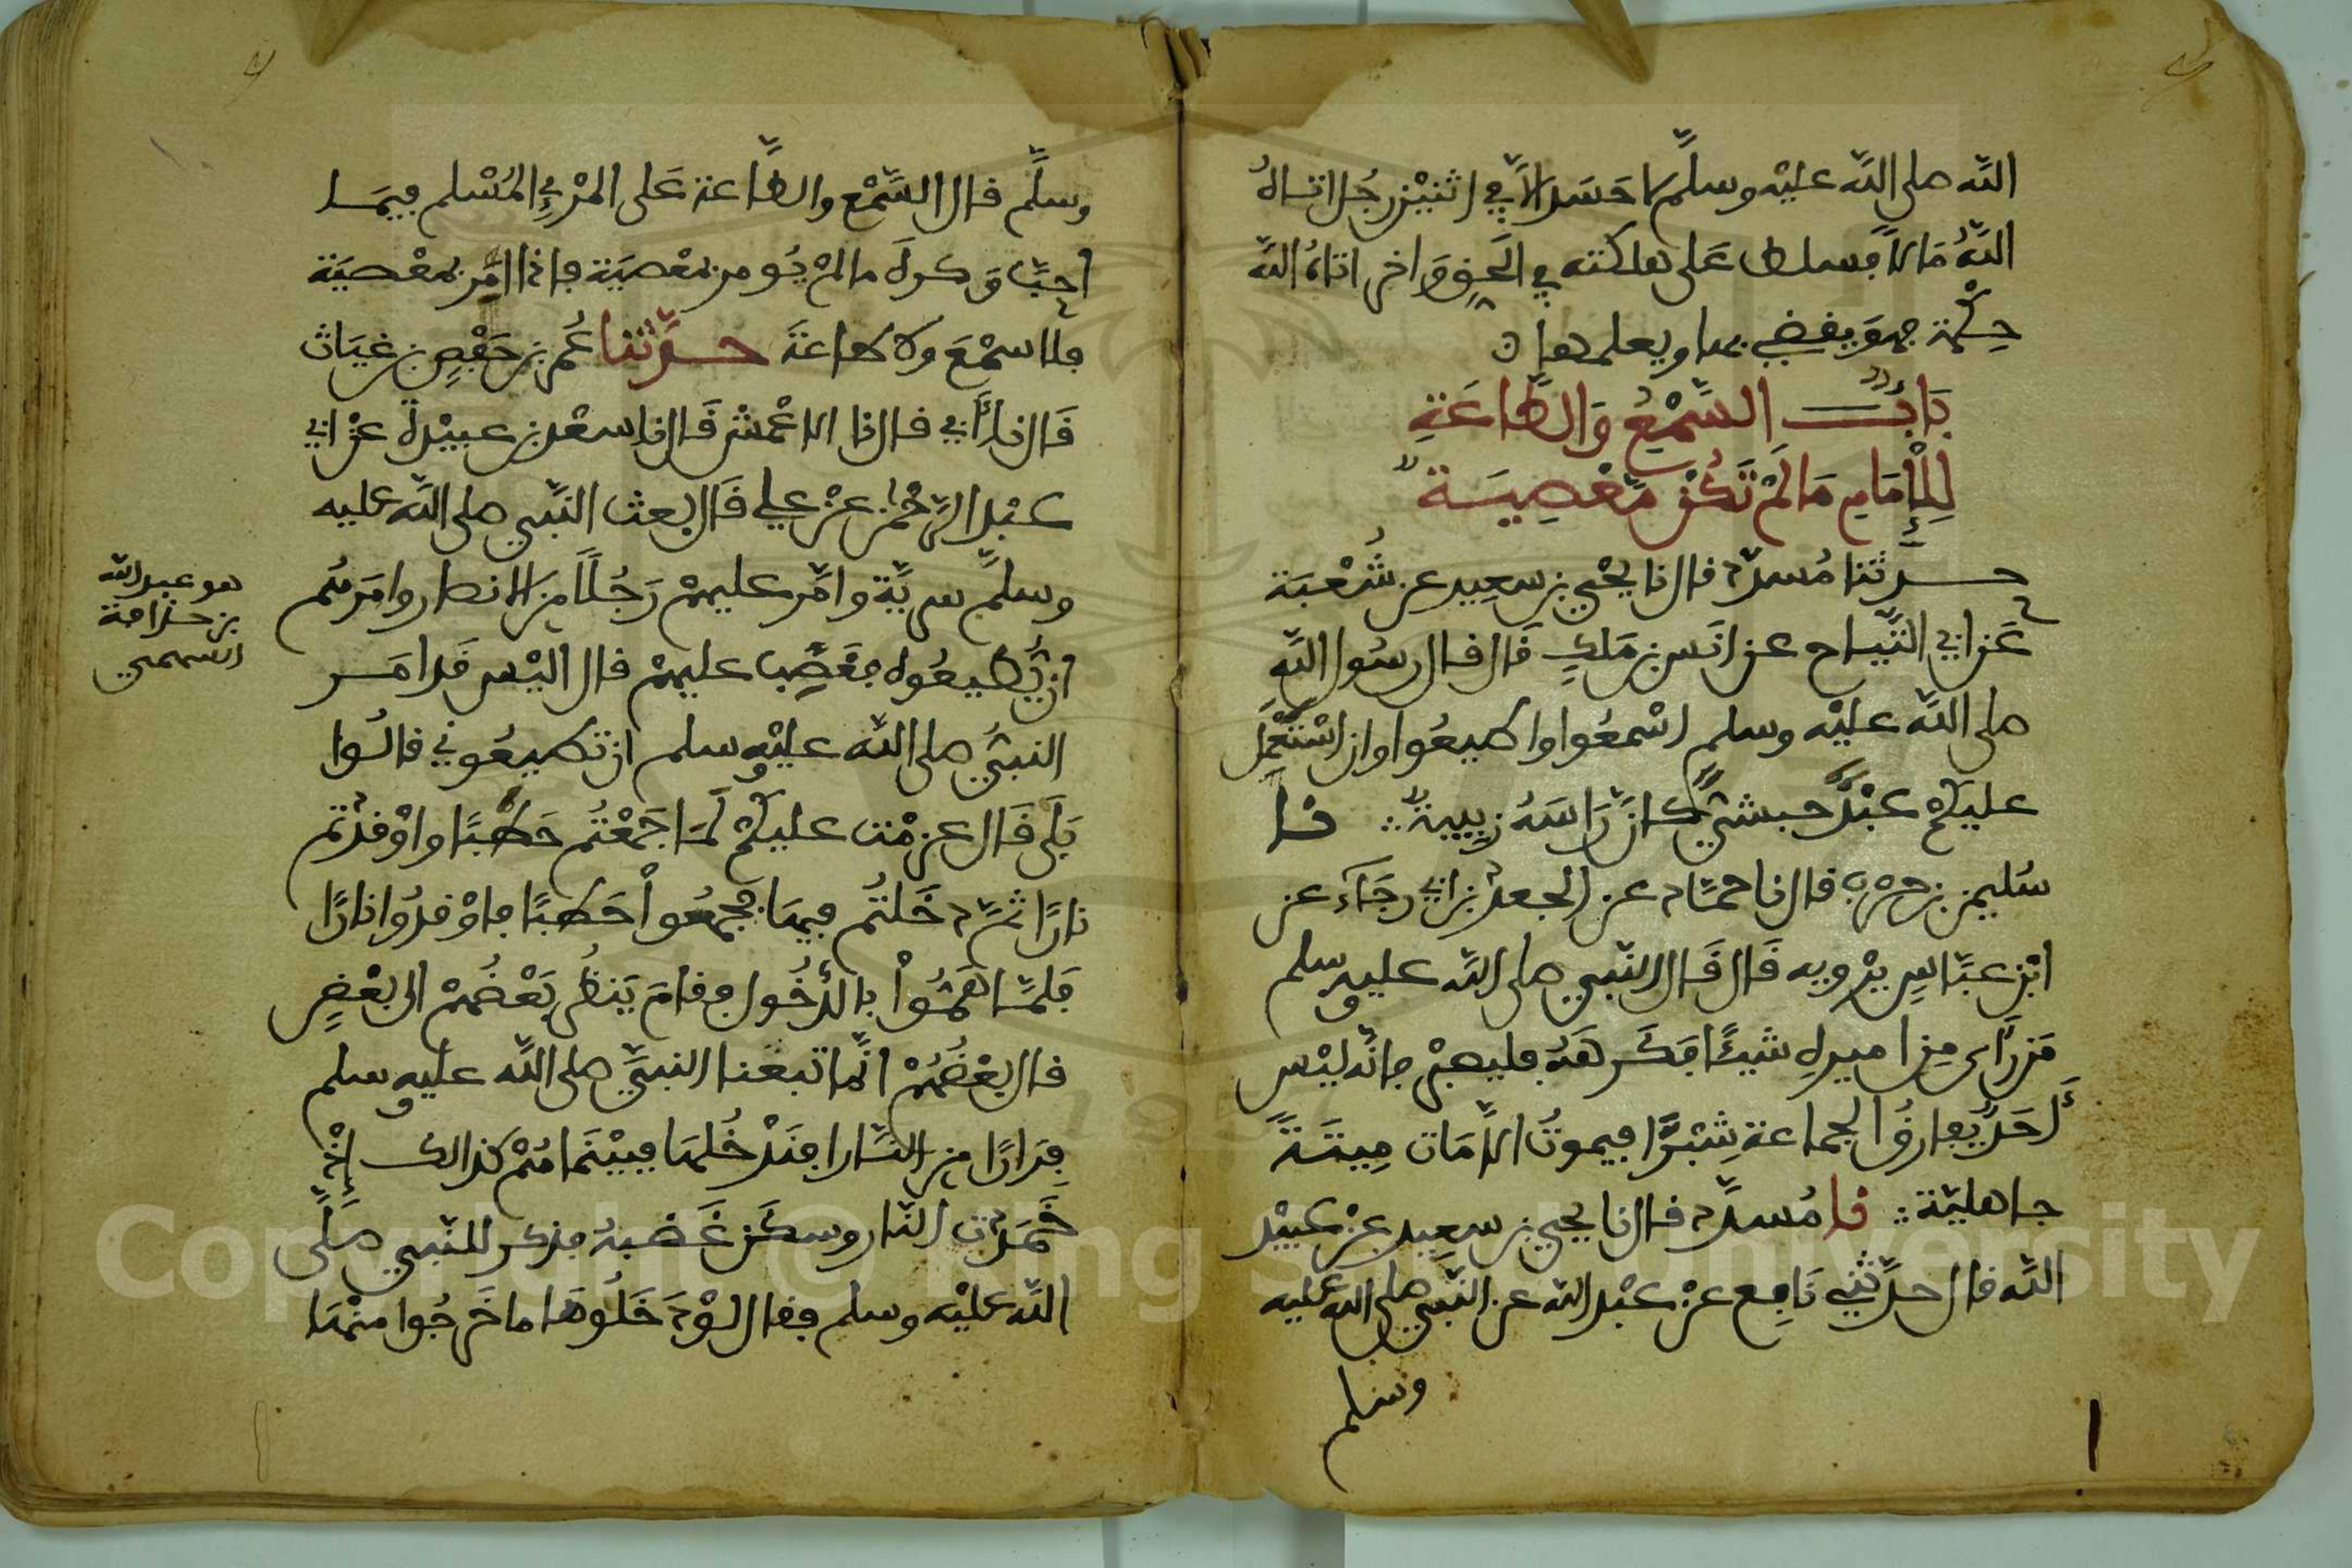 الله صلى الله عليه وسلم لا حَسَدَ إلا في اثنين رجل اتاه
الله مَالاً فسلط عَلى هلكته في الحق وَاخر اتاه الله
حِكْمة فهوَ يقضي بها ويعلمها
بَابُ السَّمْعِ وَالطَّاعَةِ
لِلْإمَامِ مَالَمْ تَكُنْ مَعْصِيَة
حدثنا مُسدد قال نا يحْيى بن سعِيد عن شُعْبَة
عَن ابي التياح عن انَس بن مَلكٍ قَال قال رسُول الله
صلى الله عليْه وسلم اسْمَعُوا واطيعُوا وان اسْتُعْمِل
عليكمْ عَبْدٌ حبشيٌ كانَّ رَاسَهُ زبيبة نا
سُليمن بن حرْب قال نا حمَّاد عن الجعد بن ابي رجَاءَ عن
ابْن عبَّاسٍ يرْويه قَال قَال النبي صلى الله عليه وسلم
مَن رَأى مِن اميرهِ شيئًا فكَرهَهُ فليصبْر فانه ليْس
أحَدٌ يفارقُ الجماعة شِبْرًا فيموتُ الا مَات مِيتَةً
جاهليَّة نا مُسدد قال نا يحيى بن سعِيد عنْ عبيْد
الله قال حدثني نَافِع عنْ عبْد الله عن النبي صلى الله عليه
وسلم
وسلم قال السَّمْع والطَّاعة عَلى المرْءِ المُسْلم فيمَا
احبَّ وَكره مالمْ يُومر بمعْصيَة فاذا امر بمعْصيَة
فلا سمْعَ ولا طاعَة حدثنا عُمر بن حَفْصِ بن غيَاث
قَال نا أبي قال نا الاعْمش قَال نا سعْد بن عبيْدة عنْ ابي
عبْد الرحْمن عنْ علي قَال بعث النبي صلى الله عليه
وسلم سريَّة وامَّر عليهمْ رَجُلاً مِن الانصار وامَرهُم
ان يُطيعُوه فغَضِب عليهمْ قال اليْس قَد امَر
النبيُّ صلى الله عليْه وسلم ان تطيعُوني قالُوا
بَلَى قَال عزمْت عليكمْ لمَا جَمَعْتُم حَطبًا واوْقدْتم
نارًا ثمَّ دخَلتُم فيهَا فجمعُوا حَطبًا فاوْقدُوا نارًا
فلمَّا هَمُّوا بالدُّخُول فقامَ يَنظُر بَعْضُهمْ الى بعْضٍ
قال بعْضُهُمْ انَّما تبعْنا النبيَّ صلى الله عليه وسلم
فِرَارًا من النَّار افنَدْخُلهَا فبيْنَما هُمْ كذالك إذْ
خَمَدَت النَّار وسكَن غَضَبهُ فذكر للنبي صَلَّى
الله عليْه وسلم فقال لوْ دَخَلُوهَا ما خَرجُوا منْهَا
هو عبد الله
بن حذافة
السهمي
Copyright © King Saud University